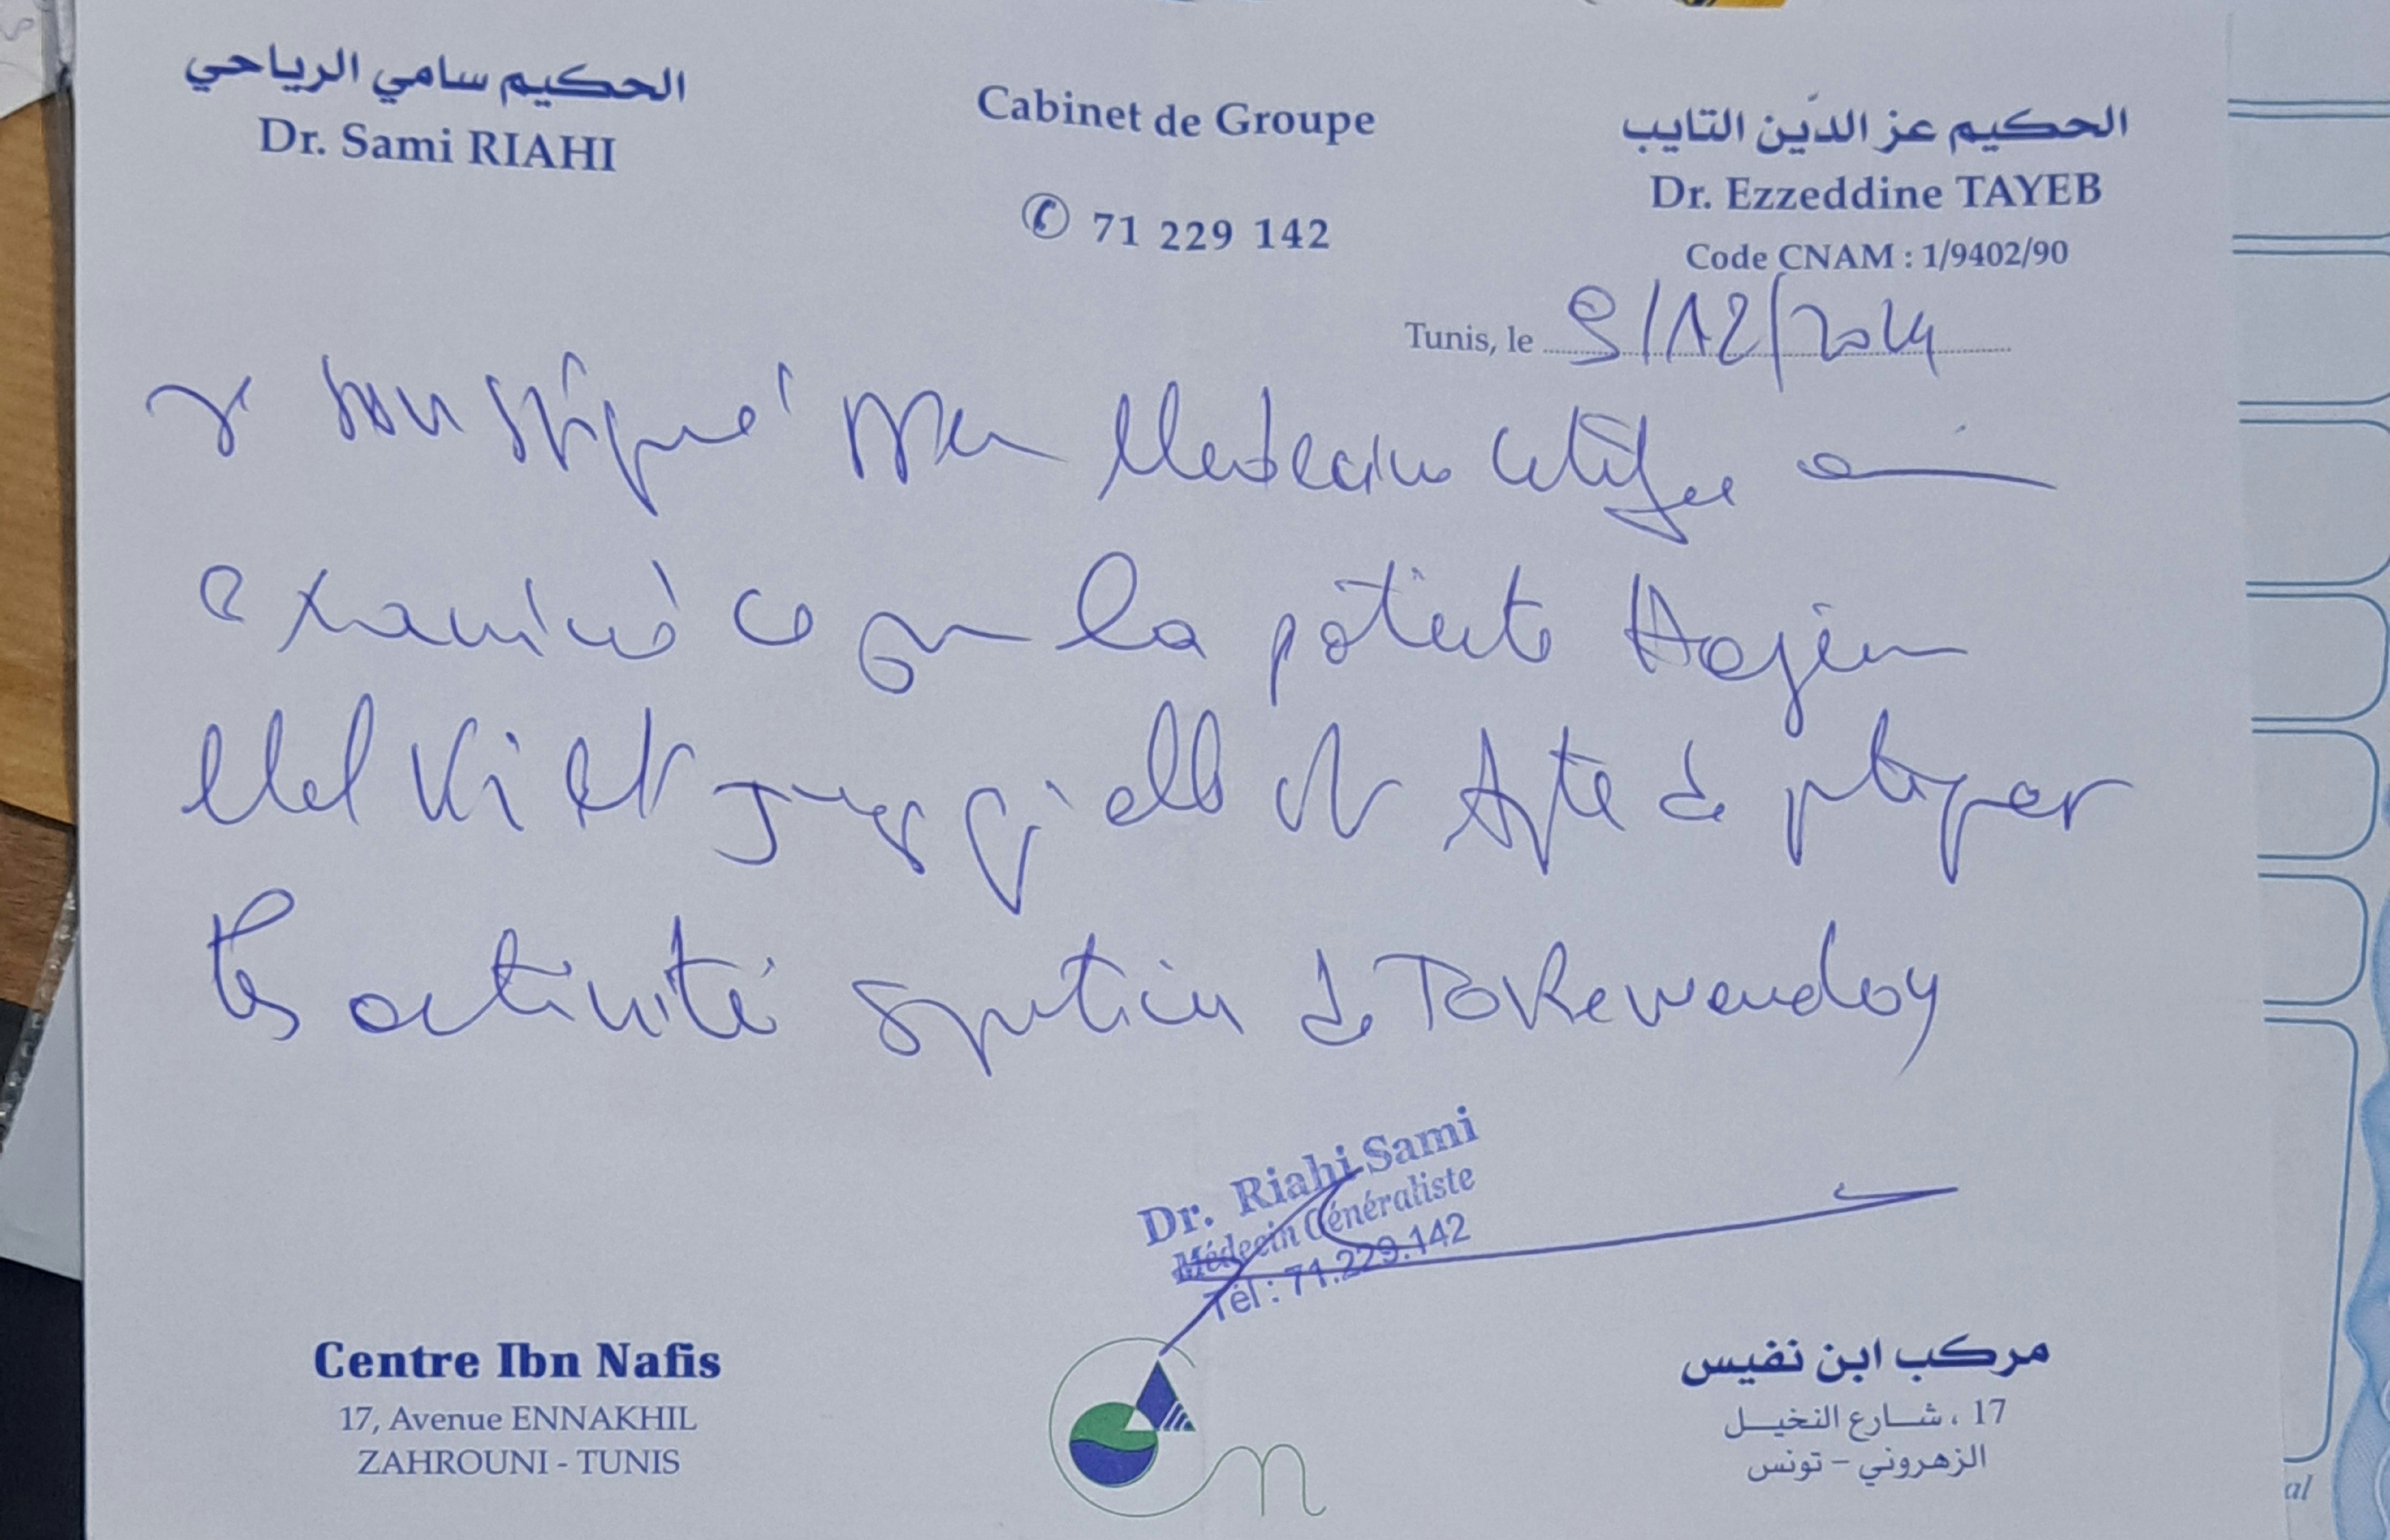 الحكيم سامي الرياحي
Dr. Sami RIAHI
Cabinet de Groupe
✆ 71 229 142
الحكيم عز الدّين التايب
Dr. Ezzeddine TAYEB
Code CNAM : 1/9402/90
Tunis, le 9/12/2024
Je soussigné Medecin certifie avoir
examiné ce jour la patiente
et juge qu'elle est Apte à pratiquer
les activité sportive de Tokewendoy
Dr. Riahi Sami
Médecin Généraliste
Tél : 71.229.142
Centre Ibn Nafis
17, Avenue ENNAKHIL
ZAHROUNI - TUNIS
مركب ابن نفيس
17 ، شارع النخيل
الزهروني - تونس
al